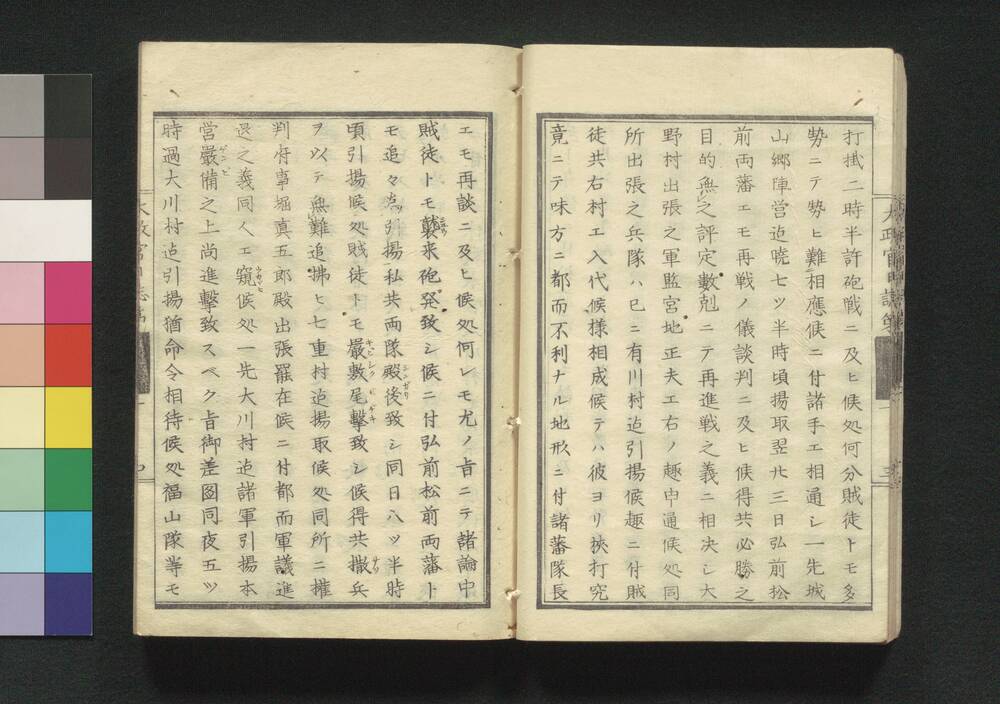 打掛二時半許砲戦ニ及ヒ候処何分賊徒トモ多
勢ニテ勢ヒ難相應候ニ付諸手エ相通シ一先城
山郷陣営迠暁七ツ半時頃揚取翌廿三日弘前松
前両藩エモ再戦ノ儀談判ニ及ヒ候得共必勝之
目的無之評定數剋ニテ再進戦之義ニ相决シ大
野村出張之軍監宮地正夫エ右ノ趣申通候処同
所出張之兵隊ハ已ニ有川村迠引揚候趣ニ付賊
徒共右村エ入代候様相成候テハ彼ヨリ挾打究
竟ニテ味方ニ都而不利ナル地形ニ付諸藩隊長
エモ再談ニ及ヒ候処何レモ尤ノ旨ニテ諸論中
賊徒トモ襲来砲発致シ候ニ付弘前松前両藩ト
モ追々引揚私共両隊殿後致シ同日八ツ半時
頃引揚候処賊徒トモ嚴敷尾撃致シ候得共撒兵
ヲ以テ無難追拂ヒ七重村迠揚取候処同所ニ権
判府事堀真五郎殿出張罷在候ニ付都而軍議進
退之義同人エ窺候処一先大川村迠諸軍引揚本
営嚴備之上尚進撃致スヘク旨御差図同夜五ツ
時過大川村迠引揚猶命令相待候処福山隊等モ